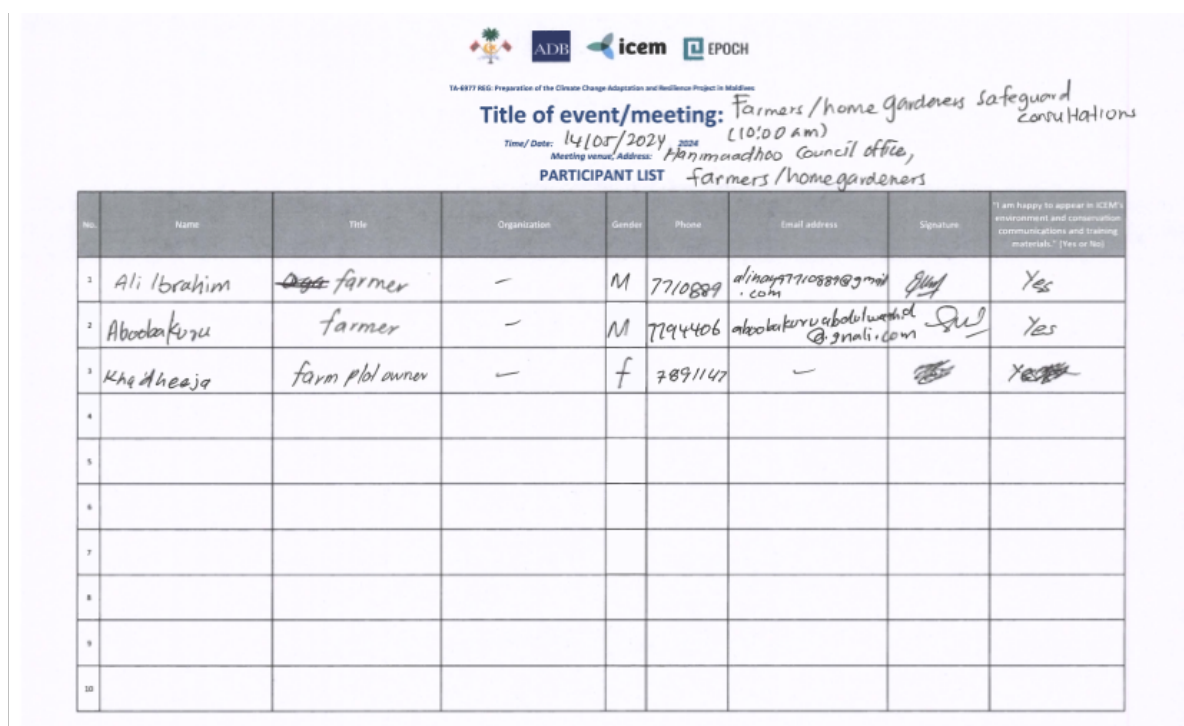 ADB icem EPOCH
TA-6977 REG: Preparation of the Climate Change Adaptation and Resilience Project in Maldives
Title of event/meeting: Farmers/home gardeners safeguard consultations
(10:00 am)
Time/ Date: 14/05/2024 2024
Meeting venue, Address: Hanimaadhoo Council office,
PARTICIPANT LIST farmers/homegardeners
No. Name Title Organization Gender Phone Email address Signature "I am happy to appear in ICEM's environment and conservation communications and training materials." (Yes or No)
1 Ali Ibrahim farmer - M 7710889 @gmail.com Yes
2 Aboobakuru farmer - M 7794406 @gnali.com Yes
3 Khadheeja farm plol owner - f 7891147 -
4
5
6
7
8
9
10